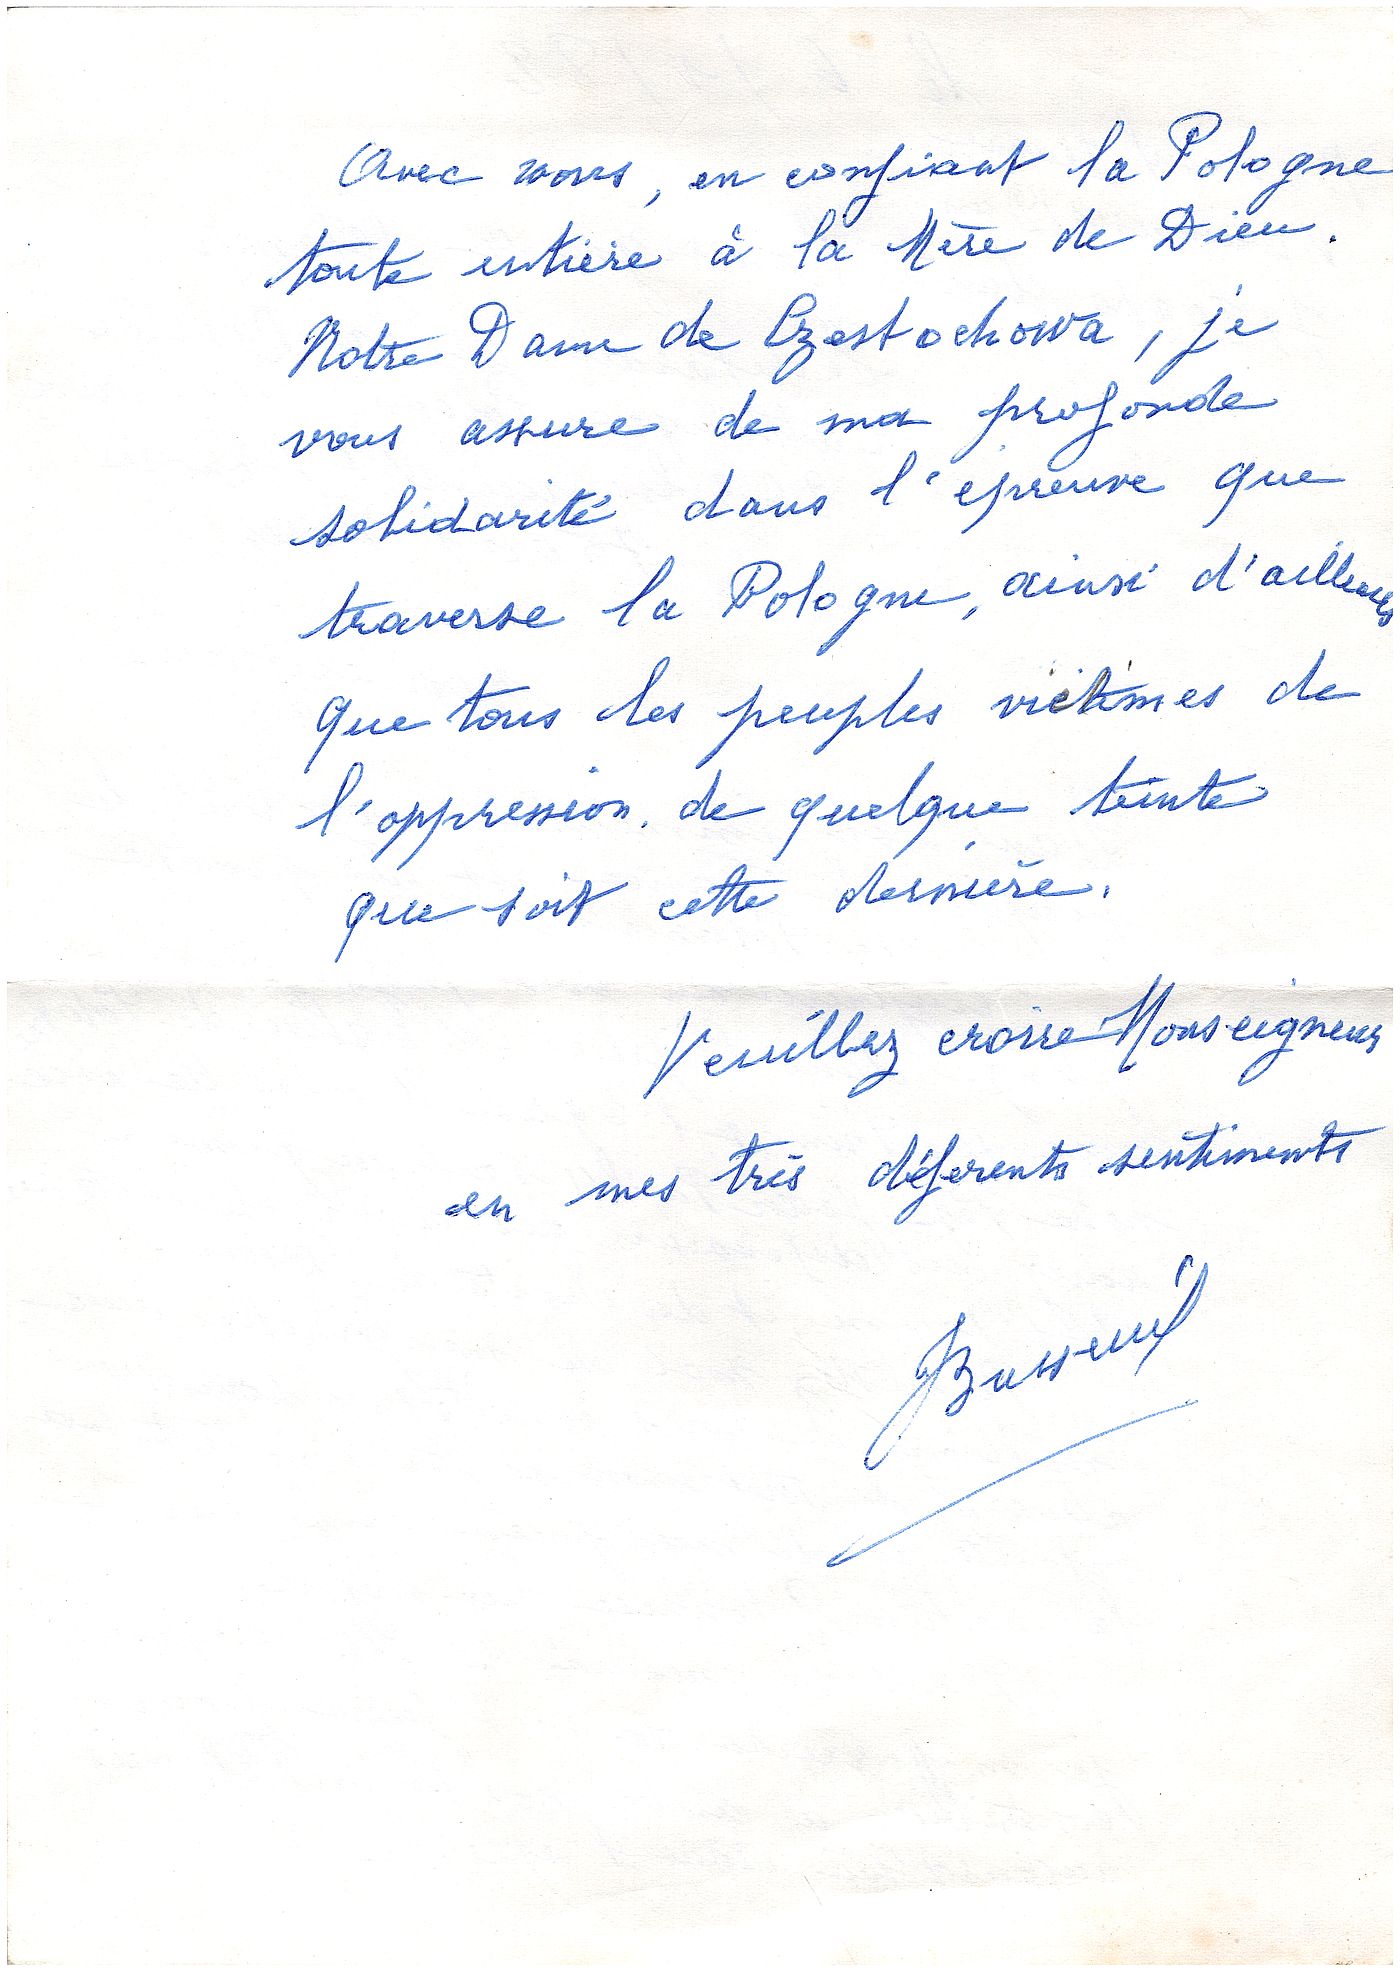 Avec vous, en confiant la Pologne
toute entière à la Mère de Dieu.
Notre Dame de Czestochowa, je
vous assure de ma profonde
solidarité dans l'épreuve que
traverse la Pologne, ainsi d'ailleurs
que tous les peuples victimes de
l'oppression. de quelque teinte
que soit cette dernière.
Veuillez croire Monseigneur
en mes très déférents sentiments
JBusseuil